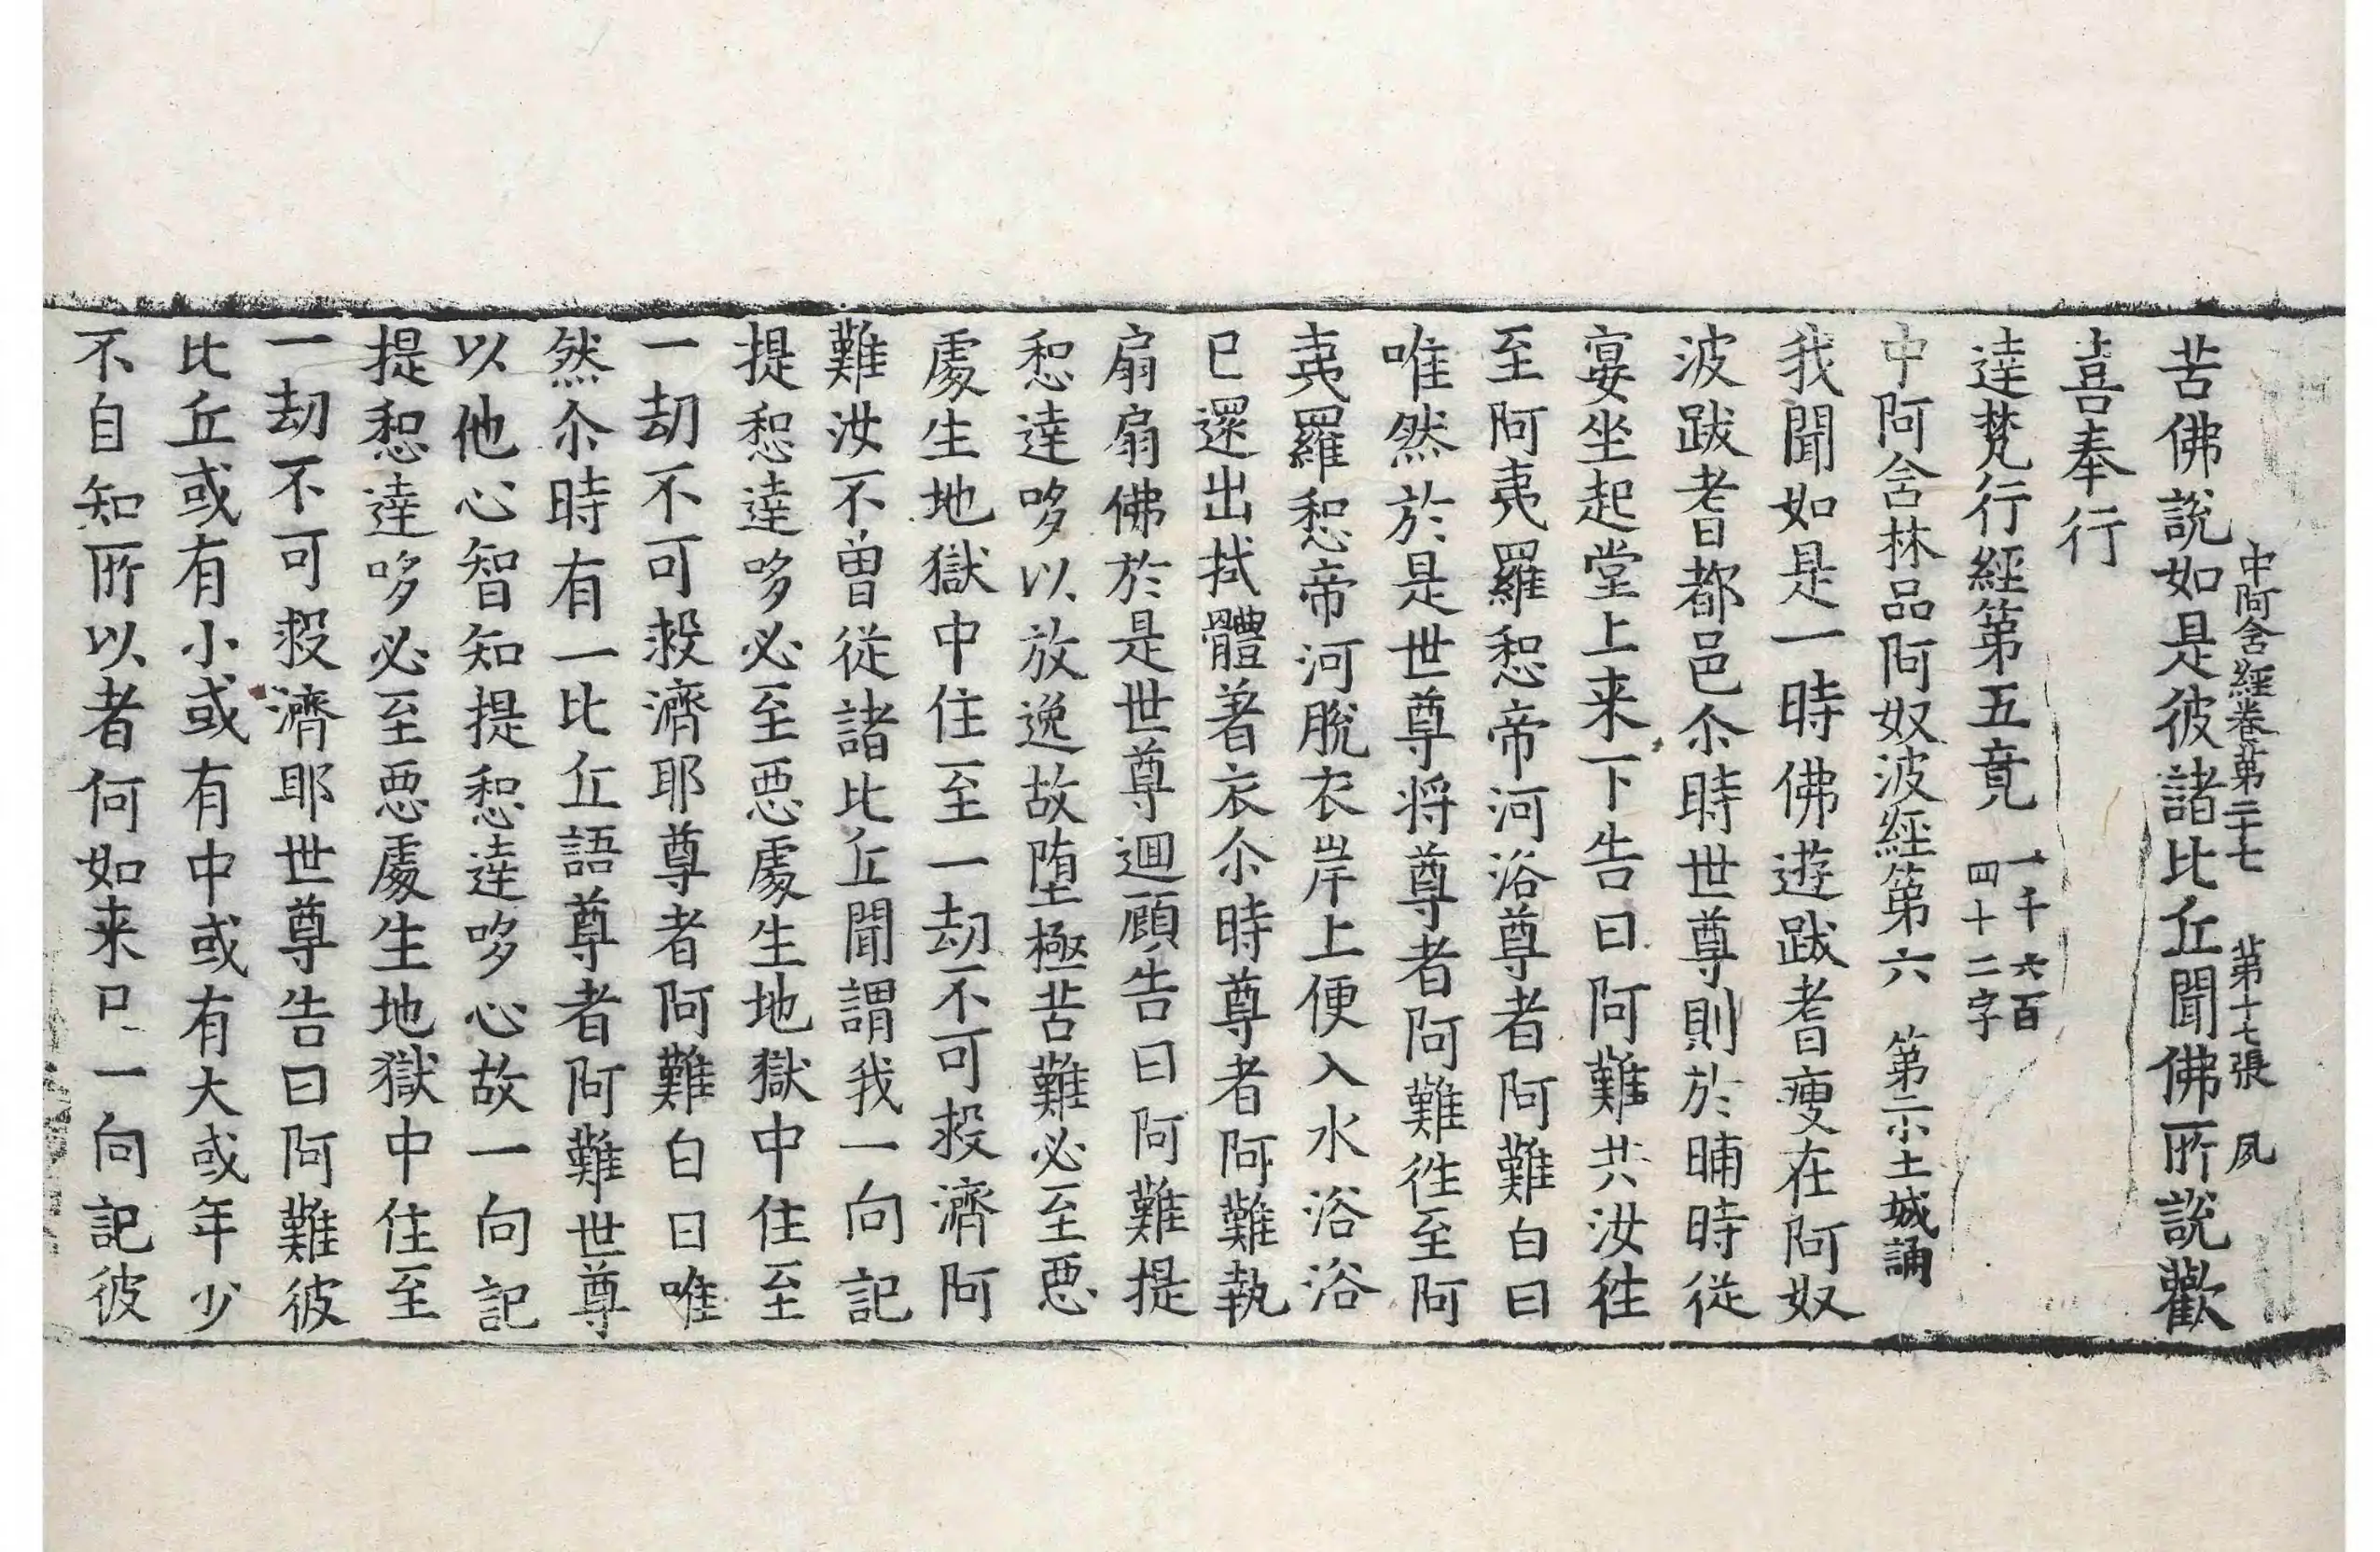 中阿含經卷第二十七 第十七張 夙
苦佛說如是彼諸比丘聞佛所說歡
喜奉行
達梵行經第五竟 一千六百四十二字
中阿含林品阿奴波經第六 第二小土城誦
我聞如是一時佛遊跋耆瘦在阿奴
波跋耆都邑尒時世尊則於晡時從
宴坐起堂上来下告曰阿難共汝往
至阿夷羅惒帝河浴尊者阿難白曰
唯然於是世尊將尊者阿難往至阿
夷羅惒帝河脫衣岸上便入水浴浴
已還出拭體著衣尒時尊者阿難執
扇扇佛於是世尊迴顧告曰阿難提
惒達哆以放逸故堕極苦難必至惡
處生地獄中住至一劫不可救濟阿
難汝不曾從諸比丘聞謂我一向記
提惒達哆必至惡處生地獄中住至
一劫不可救濟耶尊者阿難白曰唯
然尒時有一比丘語尊者阿難世尊
以他心智知提惒達哆心故一向記
提惒達哆必至惡處生地獄中住至
一劫不可救濟耶世尊告曰阿難彼
比丘或有小或有中或有大或年少
不自知所以者何如来已一向記彼